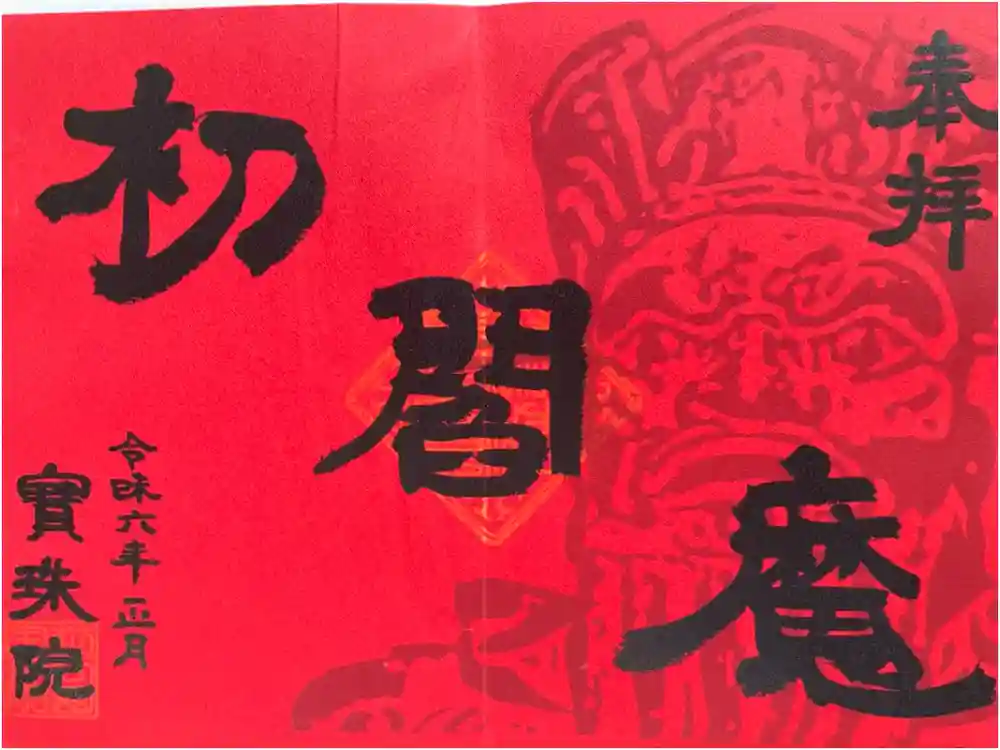 奉拝
初閻魔
令咊六年 正月
寶珠院